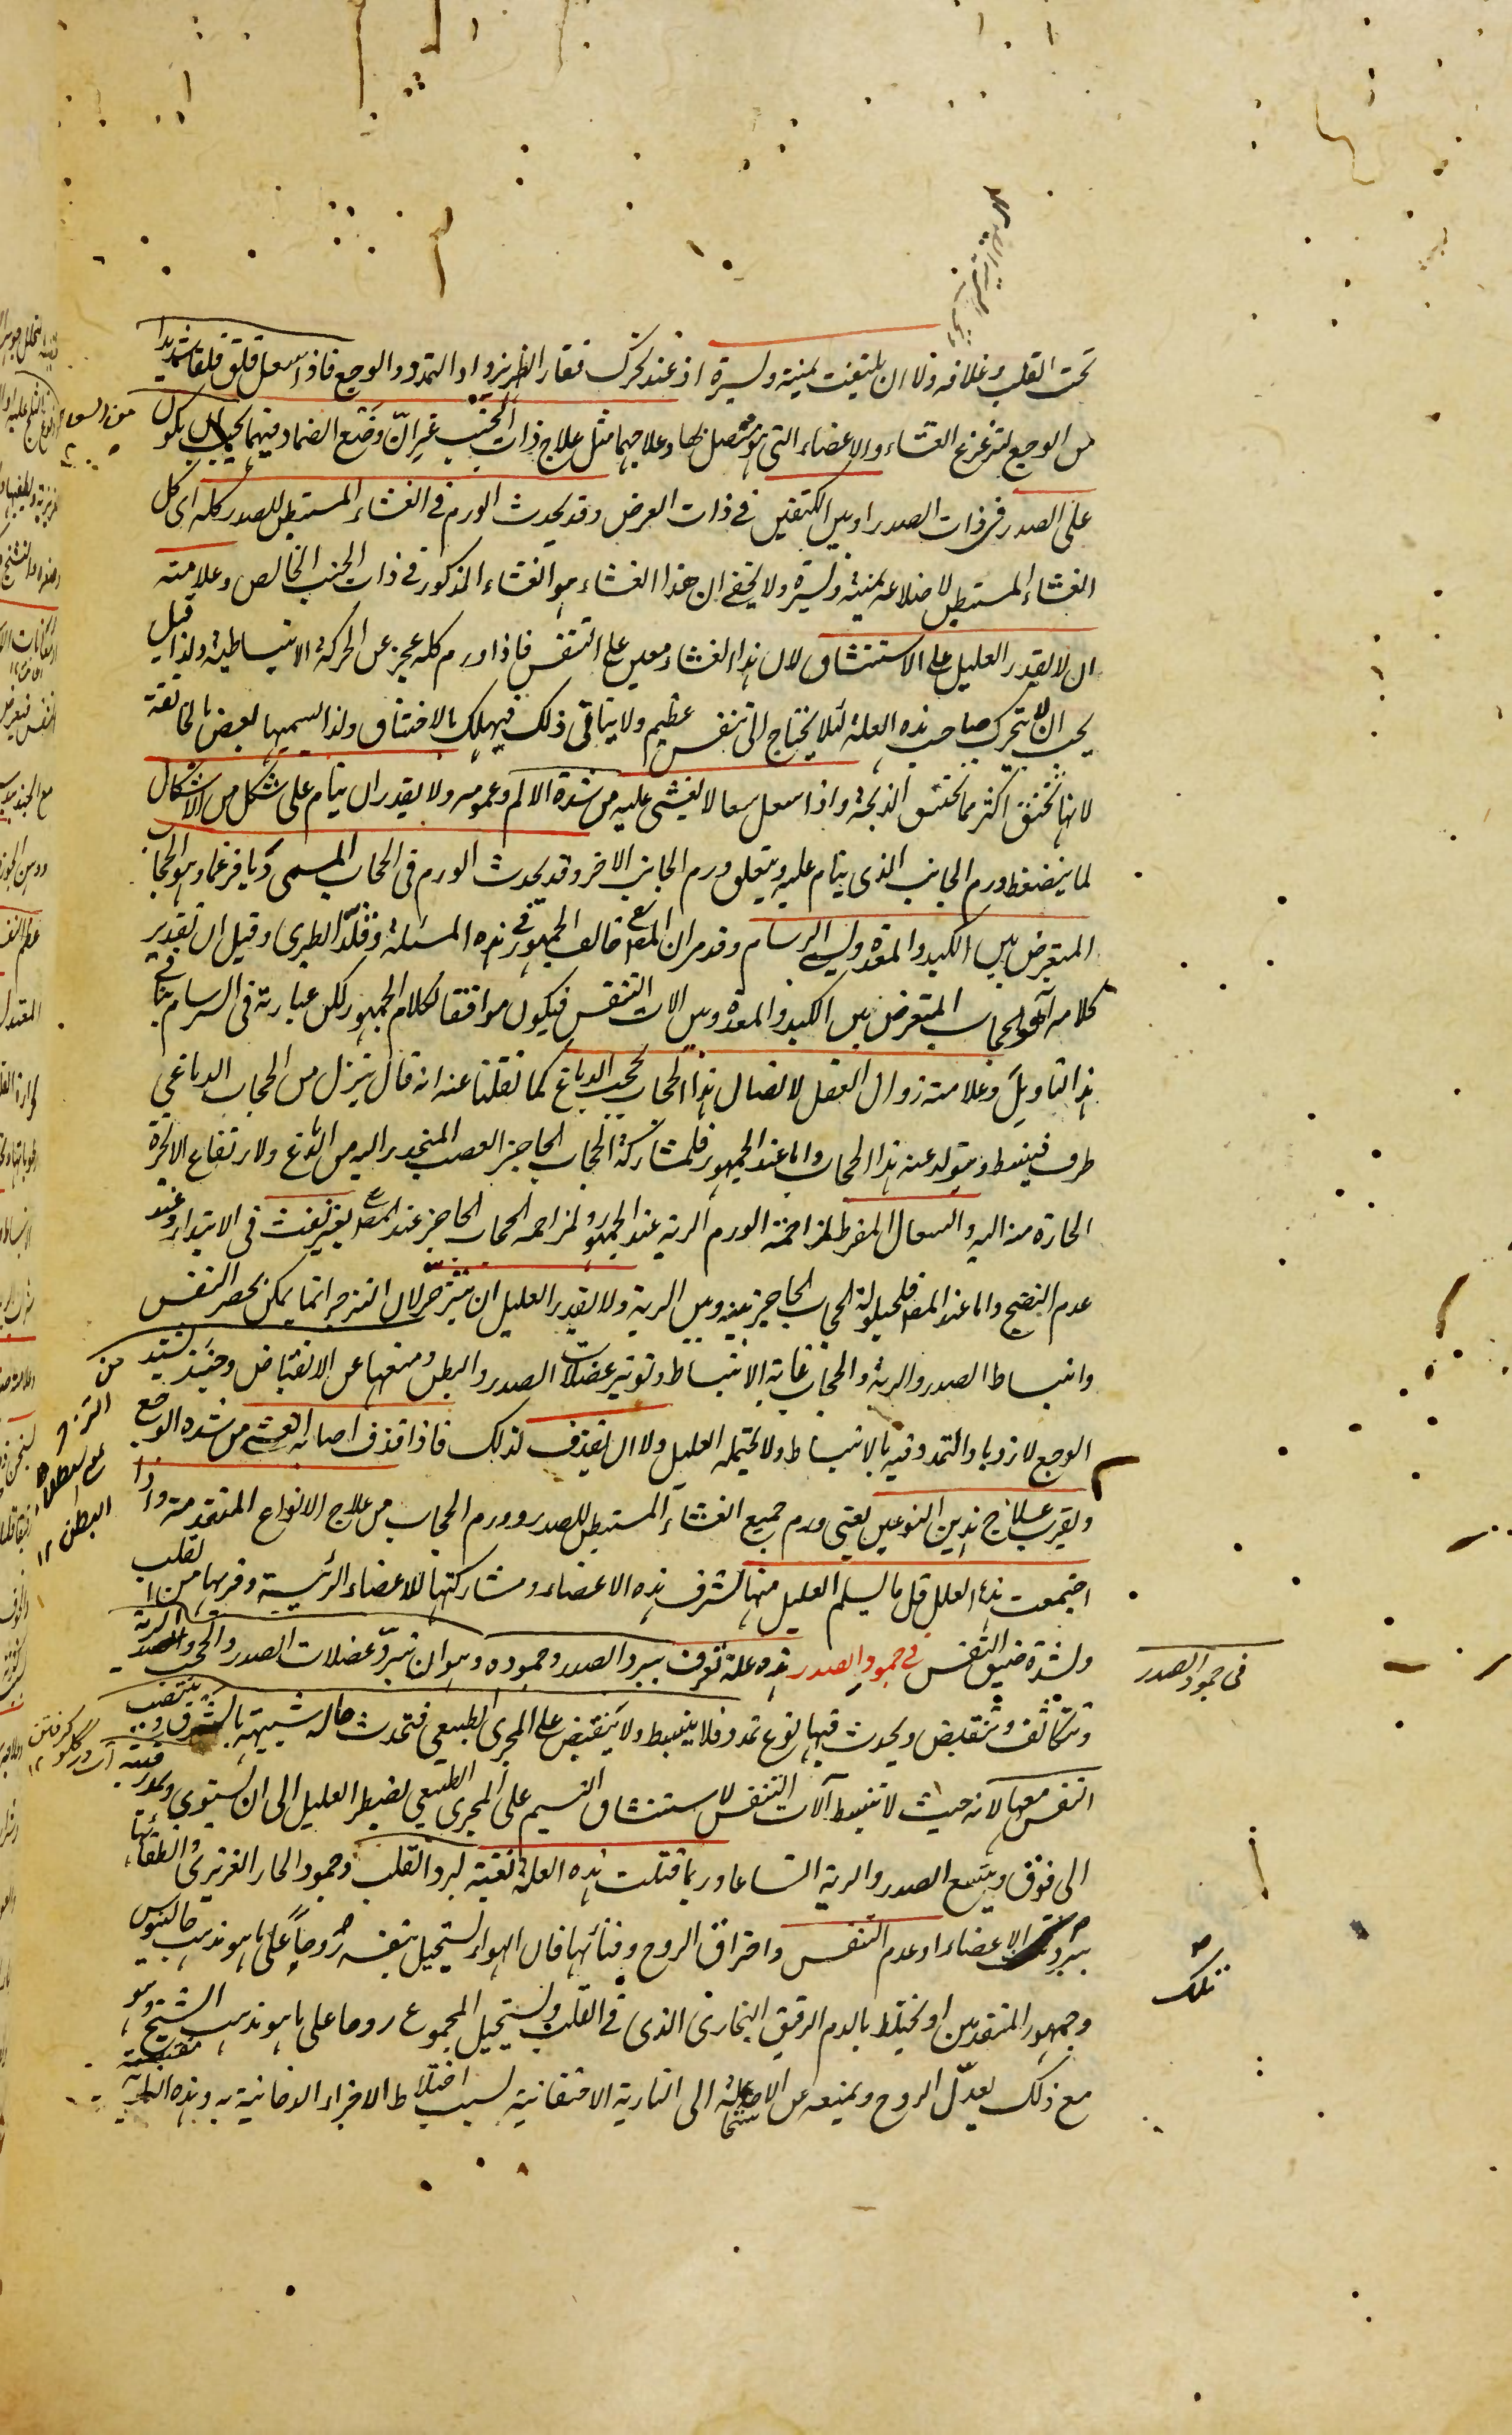 تحت القلب وغلافه ولا ان يلتفت يمنية ويسرة اذ عند تحرك فقار الظهر يزداد التمدد والوجع فاذا سعل قلق قلقا شديدا
من الوجع لتزعزع الغشاء والاعضاء التى هو متصل بها وعلاجهما مثل علاج ذات الجنب غير انّ وضع الضماد فيهما يجب ان يكون
على الصدر فى ذات الصدر او بين الكتفين فى ذات العرض وقد يحدث الورم فى الغشاء المستبطن للصدر كله اى كل
الغشاء المستبطن لاضلاعه يمنية ويسرة ولا يخفى ان هذا الغشاء هو الغشاء المذكور فى ذات الجنب الخالص وعلامته
ان لا يقدر العليل على الاستنشاق لان هذا الغشاء معين على التنفس فاذا ورم كله عجز عن الحركة الانبساطية ولذا قيل
يجب ان لا يتحرك صاحب هذه العلة لئلا يحتاج الى تنفس عظيم ولا يتاتى ذلك فيهلك بالاختناق ولذا يسميها بعض بالخانقة
لانها تخنق اكثر مما تخنق الذبحة واذا سعل سعالا يغشى عليه من شدة الالم وعمومه ولا يقدر ان ينام على شكل من الاشكال
لما ينضغط ورم الجانب الذى ينام عليه ويتعلق ورم الجانب الاخر وقد يحدث الورم فى الحجاب المسمى ديافرغما وهو الحجاب
المتعرض بين الكبد والمعدة وليس البرسام وقد مر ان المص خالف الجمهور فى هذه المسئلة وقلّد الطبرى وقيل ان تقدير
كلامه هو الحجاب المتعرض بين الكبد والمعدة وبين الات التنفس فيكون موافقا لكلام الجمهور لكن عبارته فى السرسام ينافى
هذا التاويل وعلامته زوال العقل لاتصال هذا الحجاب بحجب الدماغ كما نقلنا عنه انه قال ينزل من الحجاب الدماغى
طرف فينبسط ويتولد عنه هذا الحجاب واما عند الجمهور فلمشاركة الحجاب الحاجز العصب المنحدر اليه من الدماغ ولارتفاع الابخرة
الحارة منه اليه والسعال المفرط لمزاحمة الورم الرية عند الجمهور ولمزاحمة الحجاب الحاجز عند المص بغير نفث فى الابتداء وعند
عدم النضج واما عند المص فلحيلولة الحجاب الحاجز بينه وبين الرية ولا يقدر العليل ان يتزحر لان التزحر انما يمكن بحصر النفس
وانبساط الصدر والرية والحجاب غاية الانبساط وتوتير عضلات الصدر والبطن ومنعها عن الانقباض وحينئذ يشتد
الوجع لازدياد التمدد فيه بالانبساط ولا يحتمله العليل ولا ان يقذف لذلك فاذا قذف اصابه الغشى من شدة الوجع
ويقرب علاج هذين النوعين يعنى ورم جميع الغشاء المستبطن للصدر وورم الحجاب من علاج الانواع المتقدمة واذا
اجتمعت هذه العلل قل ما يسلم العليل منها لشرف هذه الاعضاء ومشاركتها للاعضاء الرئيسية وقربها من القلب
ولشدة ضيق النفس فى جمود الصدر هذه علة تعرف ببرد الصدر وجموده وهو ان تبرد عضلات الصدر والحجب والرية
وتتكاثف وتتقلص ويحدث فيها نوع تمدد فلا ينبسط ولا ينقبض على المجرى الطبيعى فتحدث حالة شبيهة بالشرق وينتصب
النفس معها لانه حيث لا تنبسط آلات التنفس لاستنشاق النسيم على المجرى الطبيعى يضطر العليل الى ان يستوى ويمد رقبته
الى فوق ويتسع الصدر والرية اتساعا وربما قتلت هذه العلة بغتة لبرد القلب وجمود الحار الغريزى وانطفائها
ببرد تلك الاعضاء او عدم التنفس واحتراق الروح وفنائها فان الهواء يستحيل بنفسه روحاً على ما هو مذهب جالينوس
وجمهور المتقدمين او يختلط بالدم الرقيق البخارى الذى فى القلب ويستحيل المجموع روحا على ما هو مذهب الشيخ وهو
مع ذلك يعدّل الروح ويمنعه عن الاستحالة الى النارية الاحتقانية بسبب اختلاط الاجزاء الدخانية به وهذه
فى جمود الصدر
تلك
من السعال
آب در گلو گرفتن ١٢